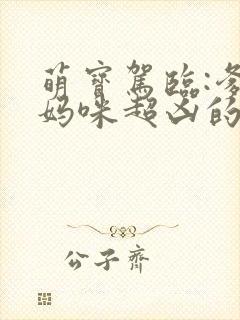 萌寶駕臨:爹
媽咪超凶的
公子齊